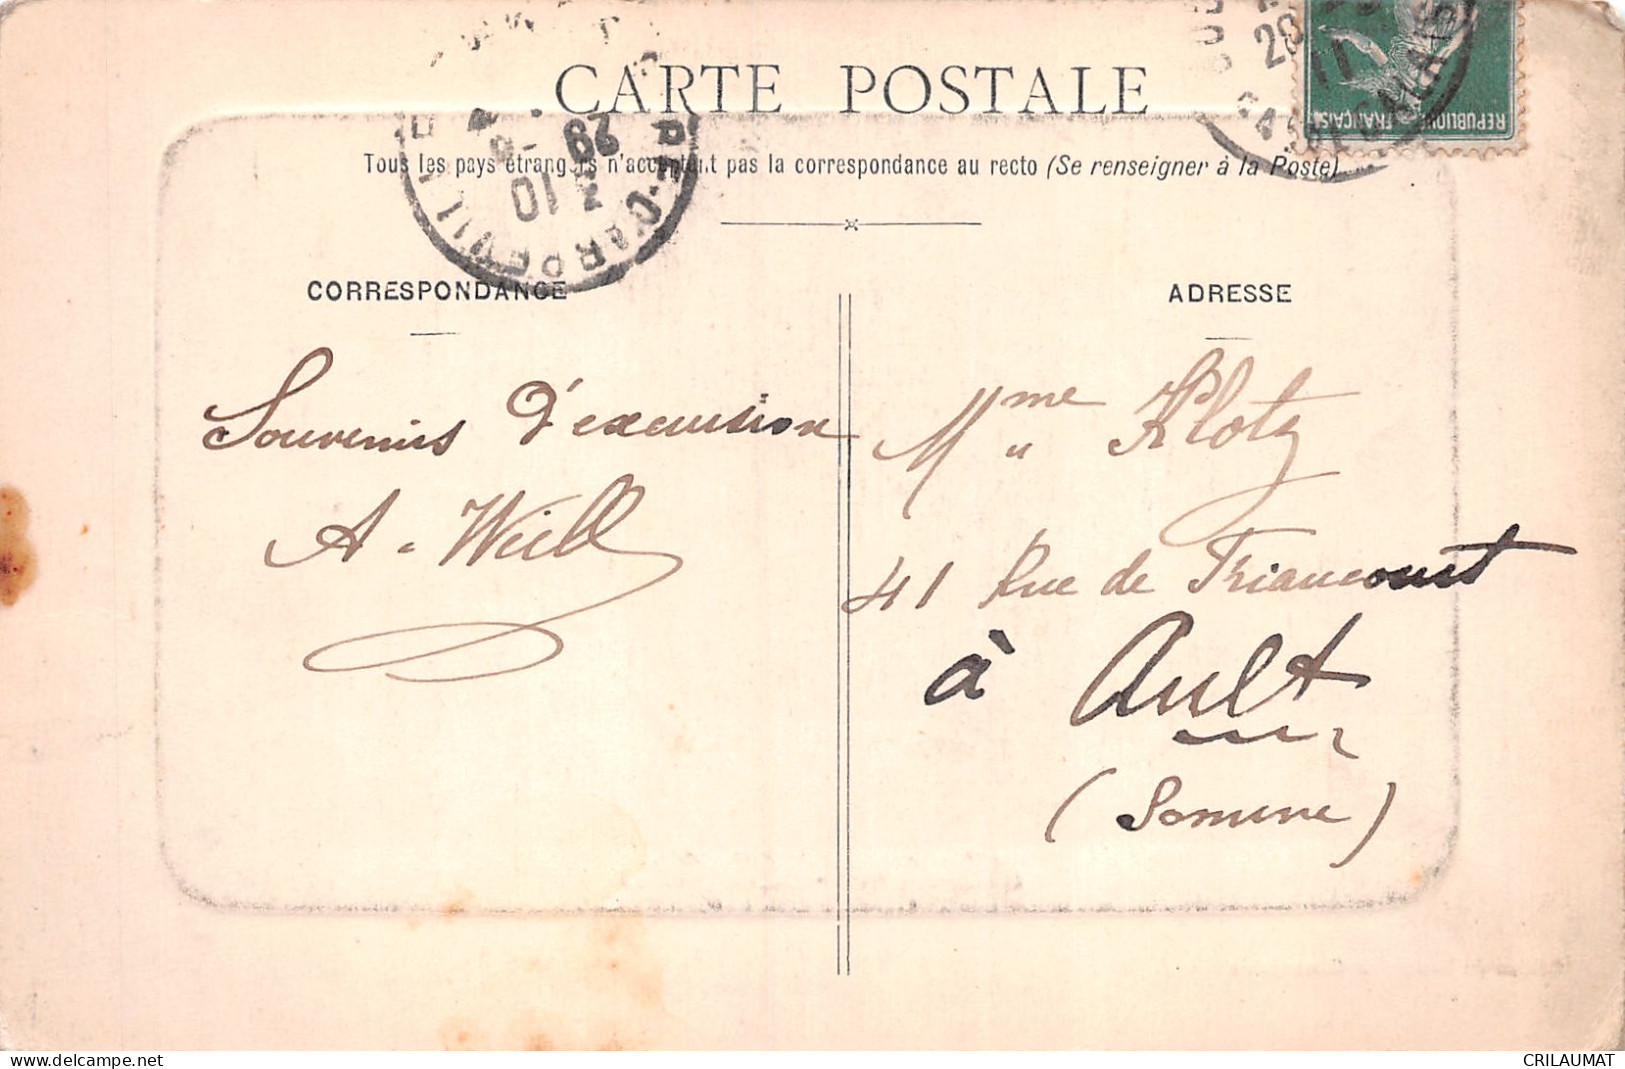 CARTE POSTALE
Tous les pays étrangers n'acceptent pas la correspondance au recto (Se renseigner à la Poste)
CORRESPONDANCE
Souvenirs d'excursion
A. Weill
ADRESSE
Mme Klotz
41 Rue de Friaucourt
à Ault
(Somme)
REPUBLIQUE FRANÇAISE
29
www.delcampe.net
CRILAUMAT